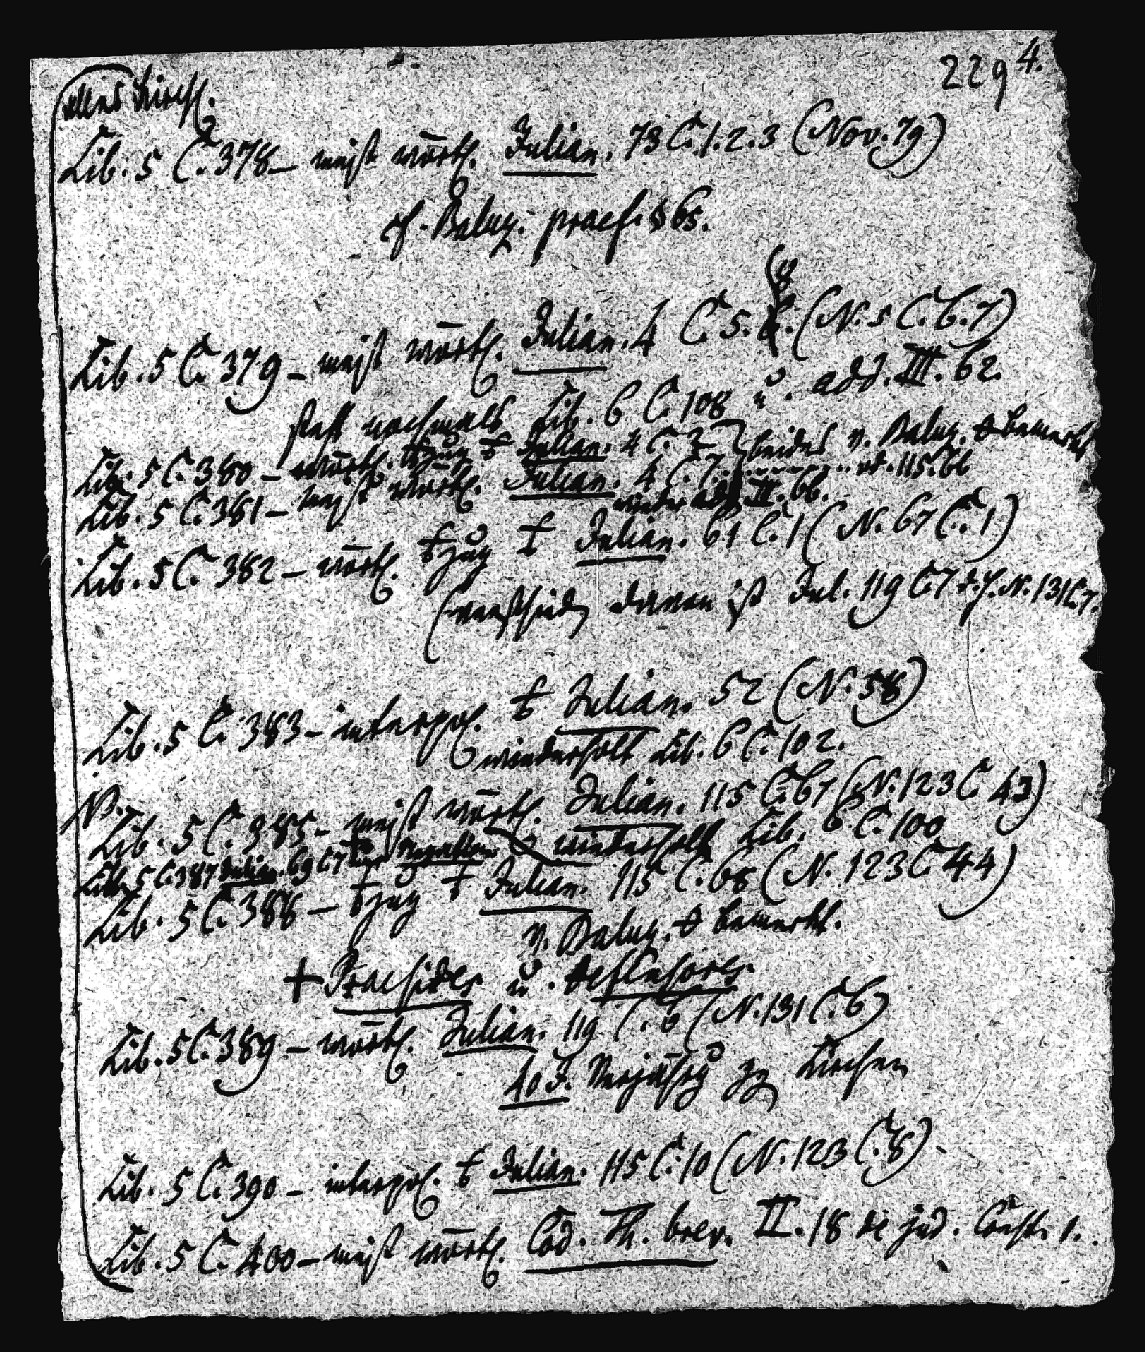 229 4.
Lib. 5 C. 378 – meist wörtl. Julian. 73 C. 1. 2. 3 (Nov. 79)
cf. Baluz. praef. § 65.
Lib. 5 C. 379 – meist wörtl. Julian. 4 C. 5. (N. 5 C. 6. 7)
steht nochmals Lib. 6 C. 108 u. add. III. 62.
Lib. 5 C. 380 – wörtl. Julian. 4 C. beides v. Baluz. bemerkt
Lib. 5 C. 381 – meist wörtl. Julian. 4 C. 7. 115. 66
wieder add. III. 66.
Lib. 5 C. 382 – wörtl. Julian. 61 C. 1 (N. 67 C. 1)
(verschieden davon ist Jul. 119 C. 7 N. 131 C. 7.
Lib. 5 C. 383 – interpol. Julian. 52 (N. 58)
wiederholt Lib. 6 C. 102.
Lib. 5 C. 385 – meist wörtl. Julian. 115 C. 67 (N. 123 C. 43)
wiederholt Lib. 6 C. 100
Lib. 5 C. 387 Julian. 69 C.
Lib. 5 C. 388 – Julian. 115 C. 68 (N. 123 C. 44)
v. Baluz. bemerkt.
+ Praesides u. defensores
Lib. 5 C. 389 – wörtl. Julian. 119 C. 6 (N. 131 C. 6)
40 J. Verjährg der Kirchen
Lib. 5 C. 390 – interpol. Julian. 115 C. 10 (N. 123 C. 8)
Lib. 5 C. 400 – meist wörtl. Cod. Th. brev. II. 18 de jud. Const. 1.